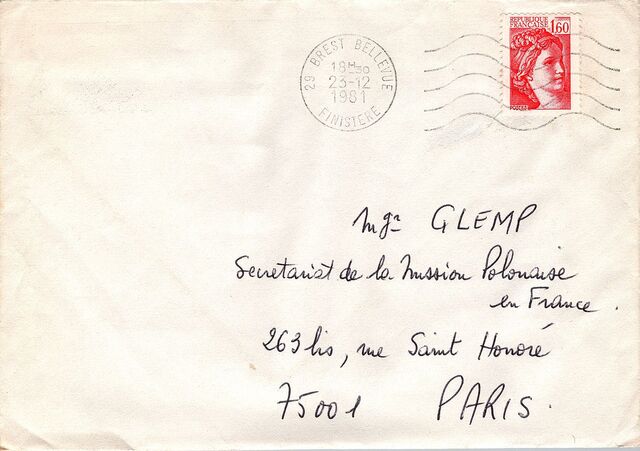 RÉPUBLIQUE
FRANÇAISE
1,60
29 BREST BELLEVUE
18H30
23-12
1981
FINISTERE
Mgr GLEMP
Secretariat de la Mission Polonaise
en France.
263 bis, rue Saint Honoré
75001 PARIS.